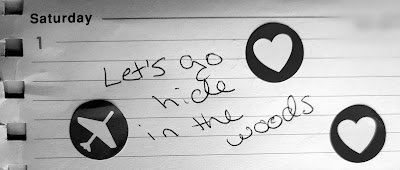 Saturday
1
Let's go
hide
in the woods